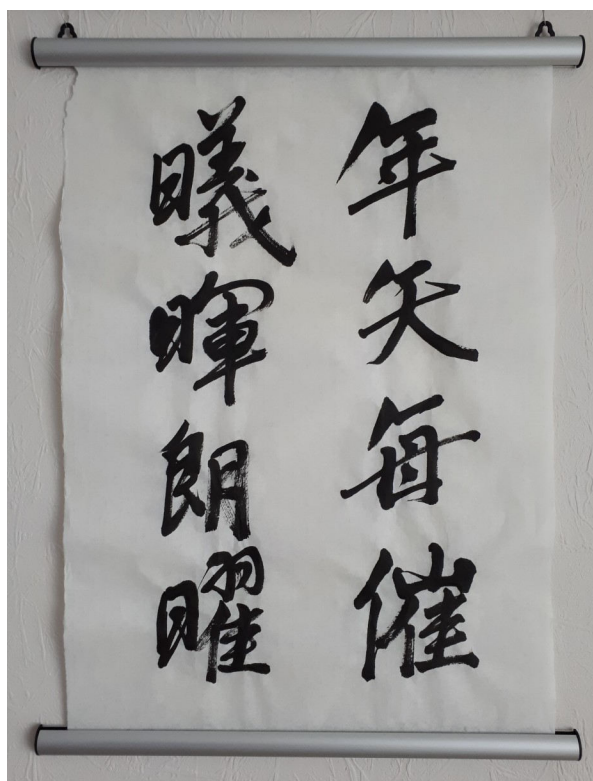 年矢每催
曦暉朗曜